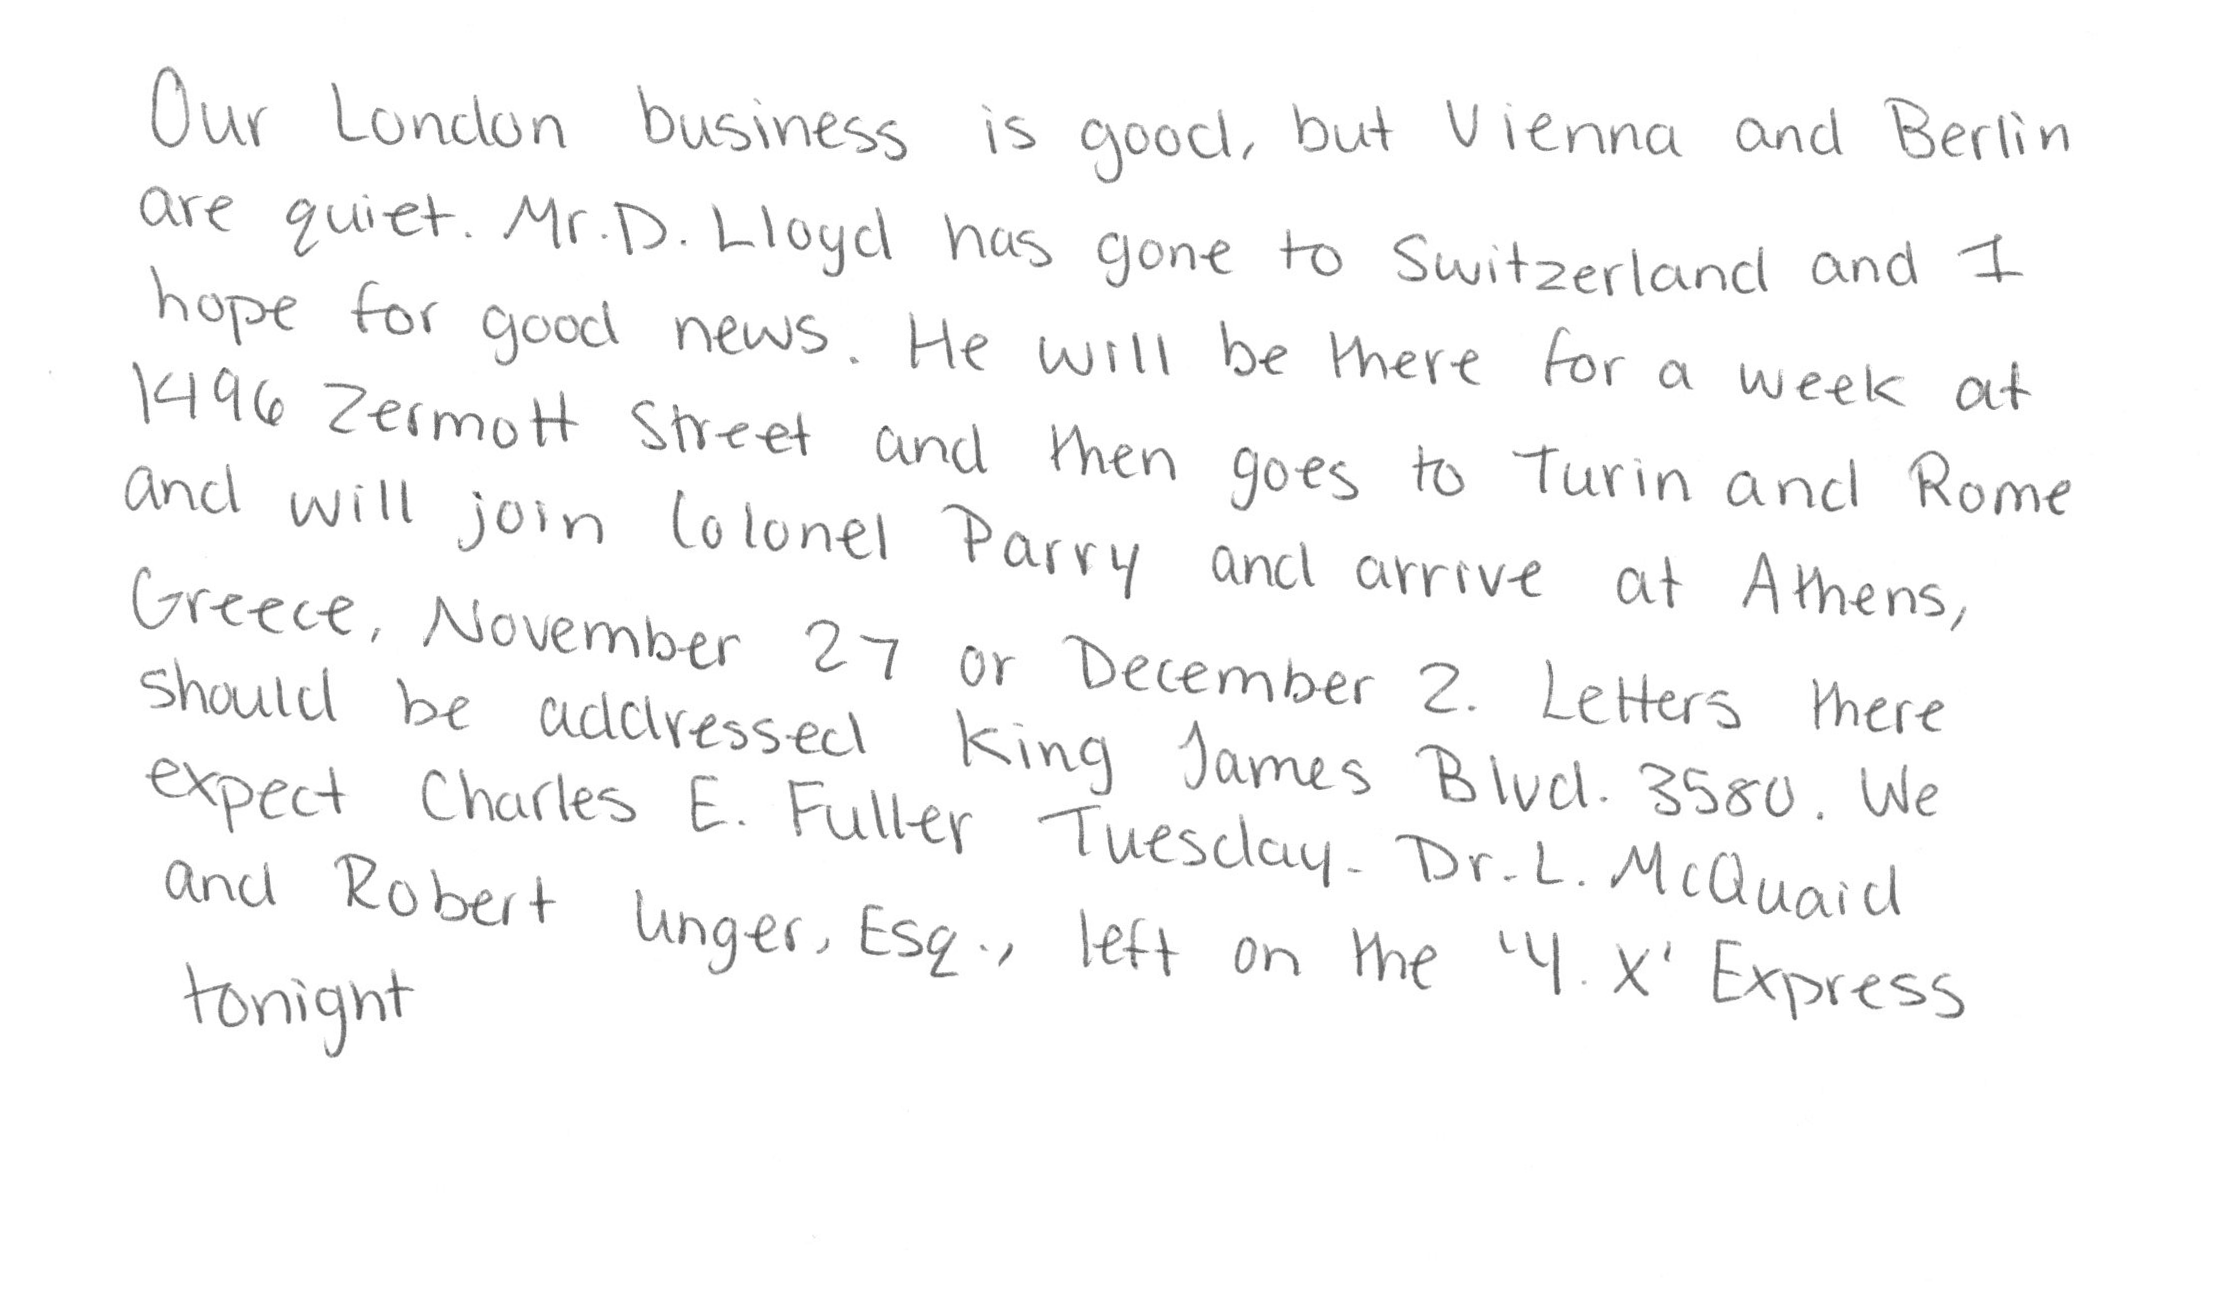 Our London business is good, but Vienna and Berlin
are quiet. Mr. D. Lloyd has gone to Switzerland and I
hope for good news. He will be there for a week at
1496 Zermott Street and then goes to Turin and Rome
and will join Colonel Parry and arrive at Athens,
Greece, November 27 or December 2. Letters there
should be addressed King James Blvd. 3580. We
expect Charles E. Fuller Tuesday. Dr. L. McQuaid
and Robert Unger, Esq., left on the 'Y. X' Express
tonight